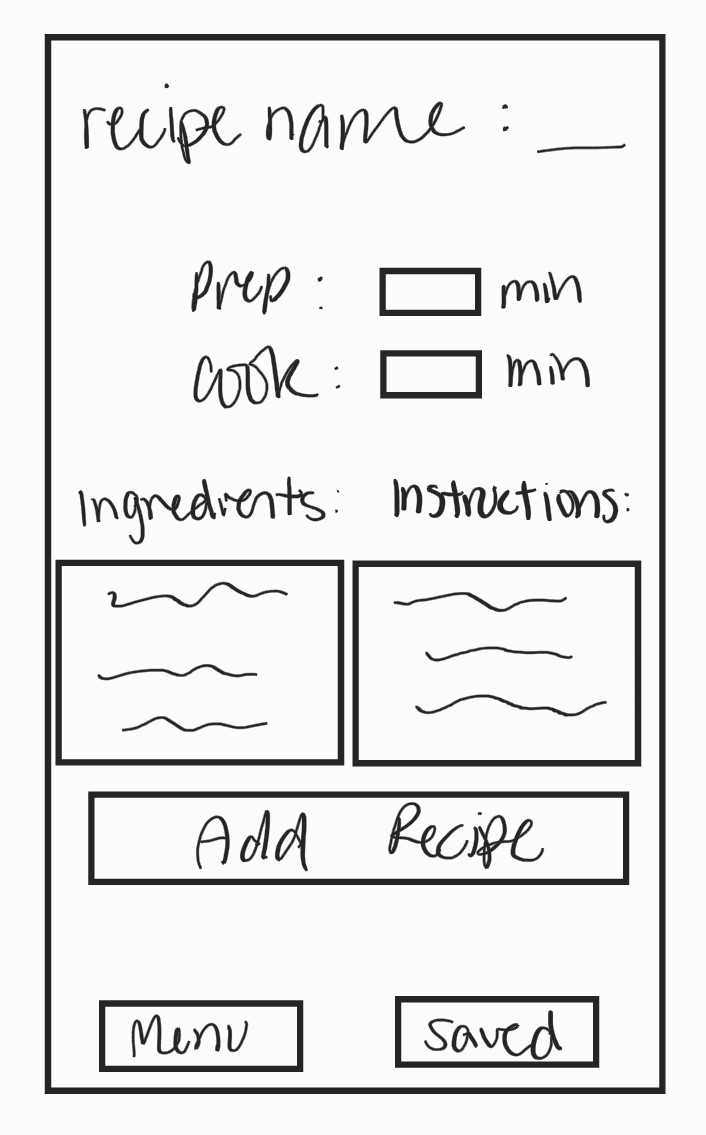 recipe name : __
Prep : min
Cook : min
Ingredients: Instructions:
Add Recipe
Menu saved